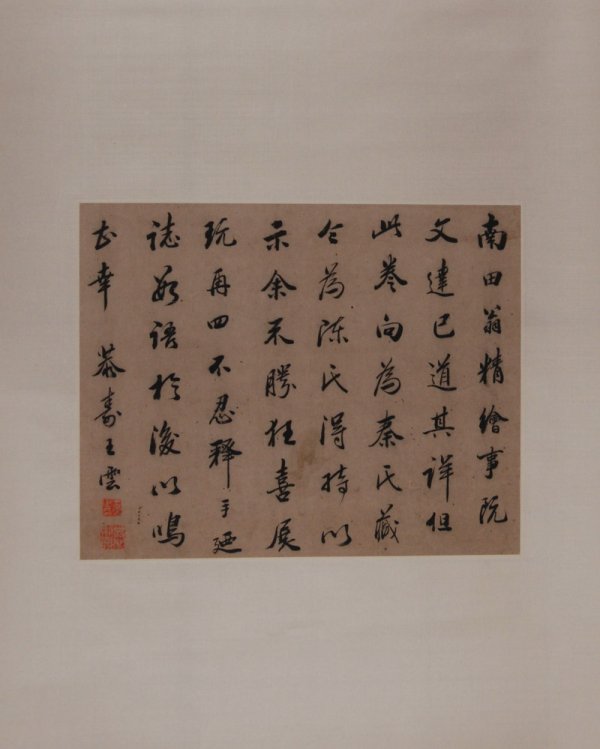 南田翁精繪事阮
文達已道其詳但
此卷向為秦氏藏
今為陳氏得持以
示余不勝狂喜展
玩再四不忍釋手廼
誌數語於後以鳴
忻幸 恭壽王雲